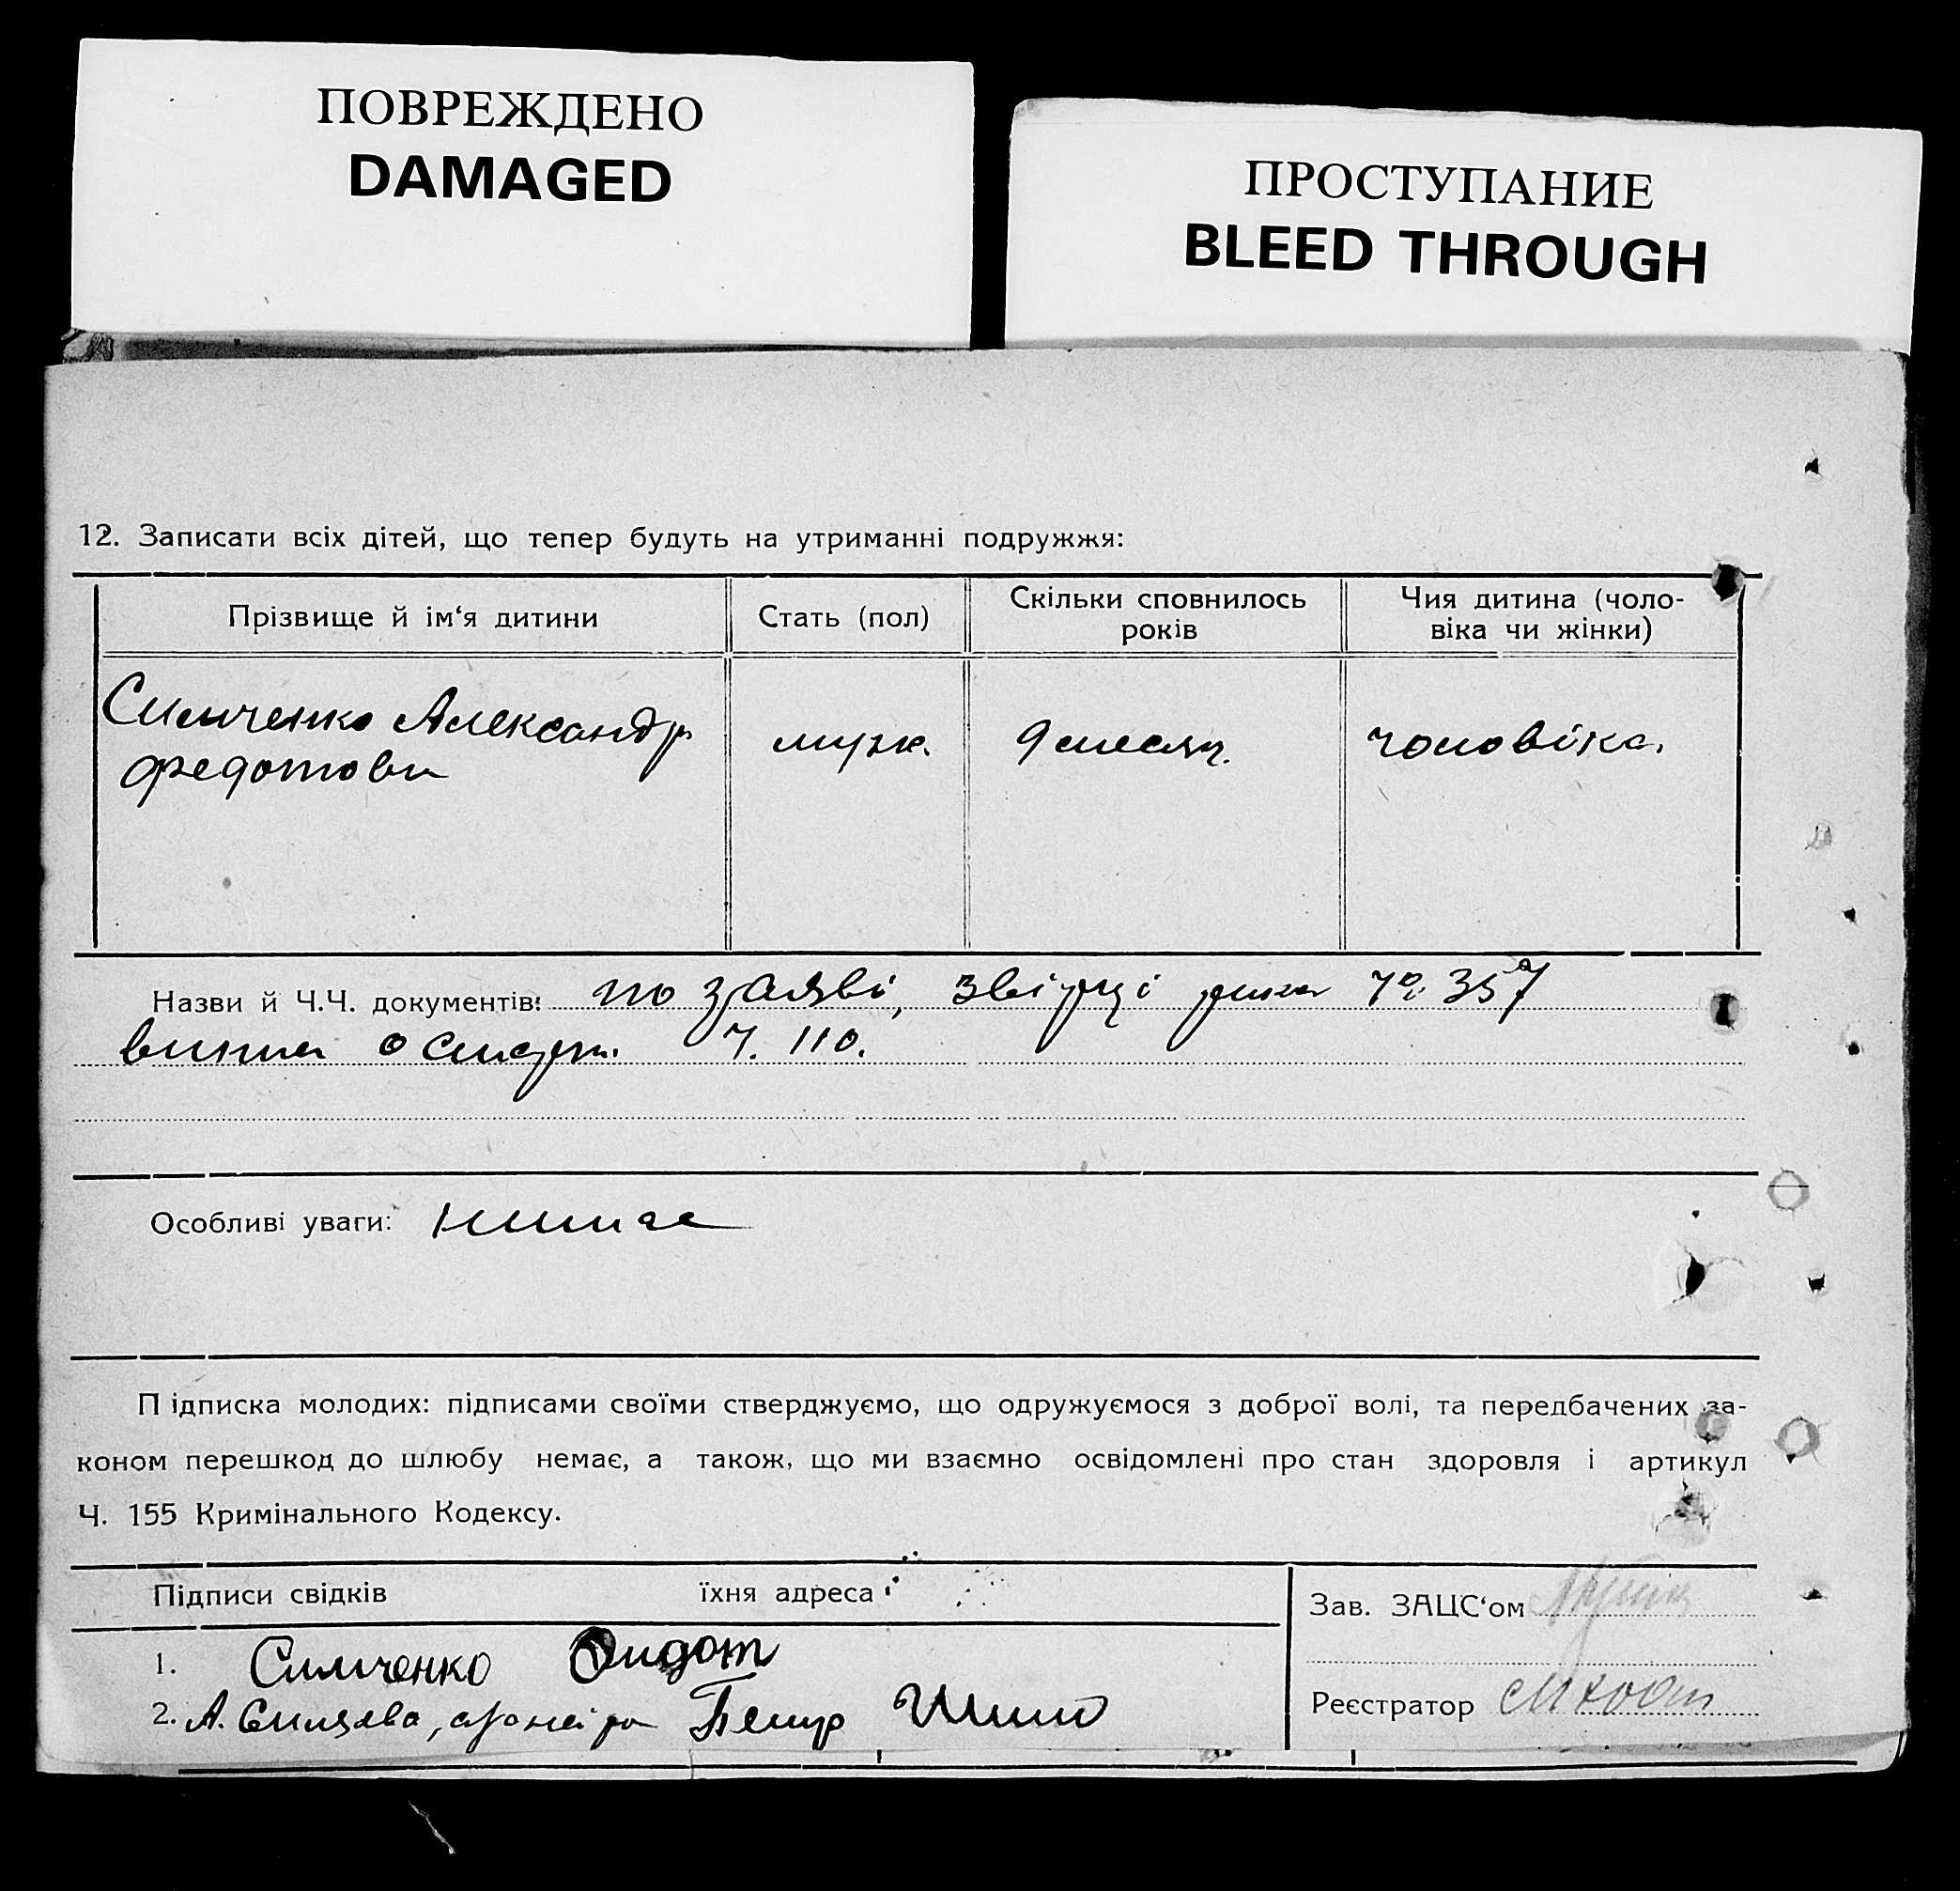 ПОВРЕЖДЕНО
DAMAGED
ПРОСТУПАНИЕ
BLEED THROUGH
12. Записати всіх дітей, що тепер будуть на утриманні подружжя:
Прізвище й ім‘я дитини
Стать (пол)
Скільки сповнилось
років
Чия дитина (чоло-
віка чи жінки)
Симченко Александр
Федотови
муж.
9 месяц.
чоловіка.
Назви й Ч.Ч. документів: по заяві, 357
о Ч. 110.
Особливі уваги:
Підписка молодих: підписами своїми стверджуємо, що одружуємося з доброї волі, та передбачених за-
коном перешкод до шлюбу немає, а також, що ми взаємно освідомлені про стан здоровля і артикул
Ч. 155 Кримінального Кодексу.
Підписи свідків їхня адреса
Зав. ЗАЦС‘ом
1. Симченко
2. А.
Реєстратор